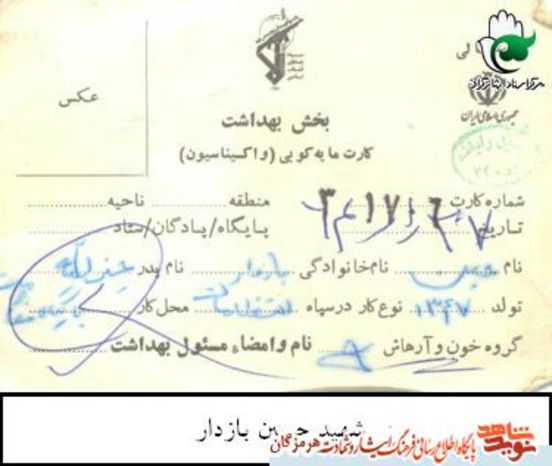 عکس
جمهوری اسلامی ایران
بخش بهداشت
کارت مایه کوبی (واکسیناسیون)
شماره کارت ۳۱۷۱۶ منطقه ناحیه
تاریخ پایگاه/پادگان/ستاد
نام حسین نام خانوادگی بازدار نام پدر
تولد ۱۳۴۷ نوع کار در سپاه محل کار
گروه خون و آرهاش نام و امضاء مسئول بهداشت
شهید حسین بازدار
نوید شاهد پایگاه اطلاع رسانی فرهنگ ایثار و شهادت هرمزگان